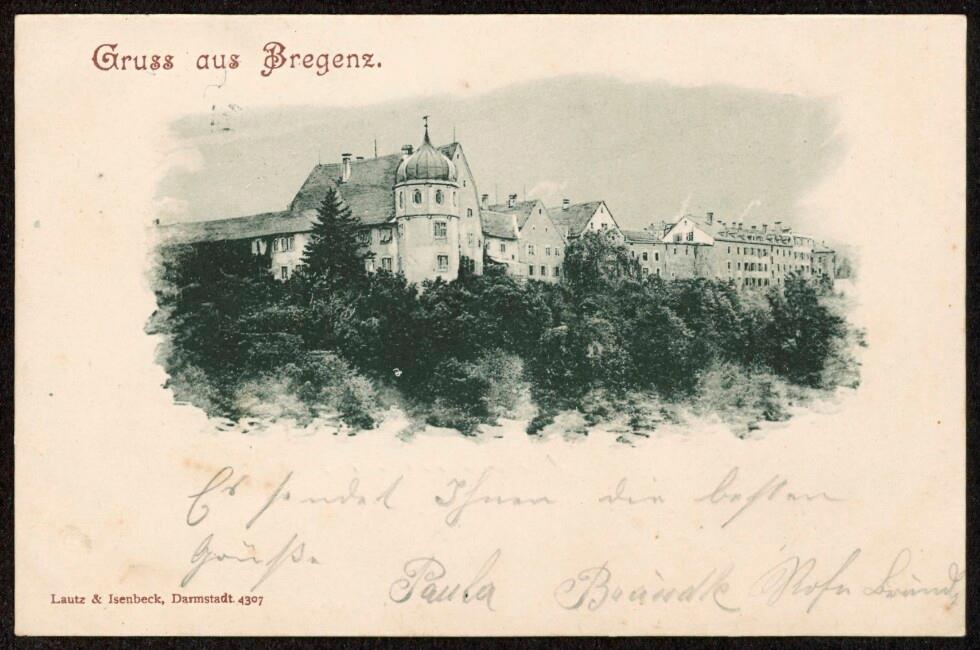 Gruss aus Bregenz.
Es sendet Ihnen die besten
Grüße
Paula
Lautz & Isenbeck, Darmstadt. 4307